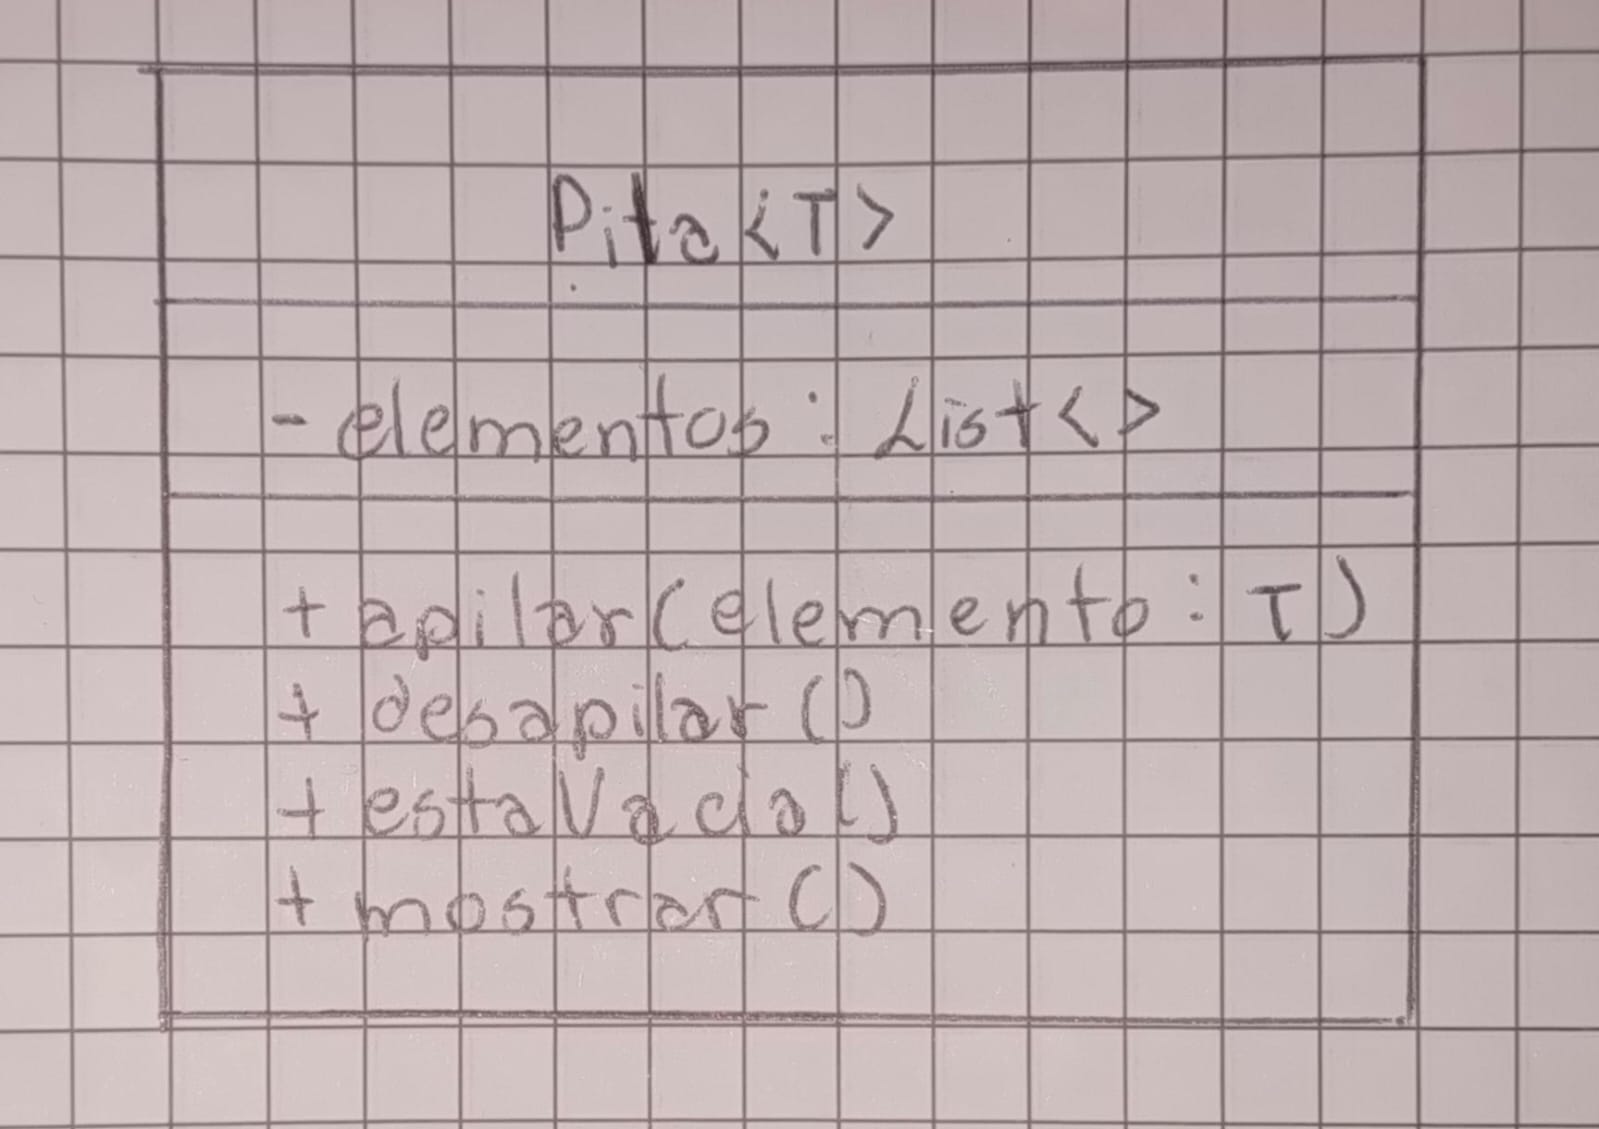 Pila<T>
- elementos: List<>
+ apilar(elemento: T)
+ desapilar()
+ estaVacia()
+ mostrar()